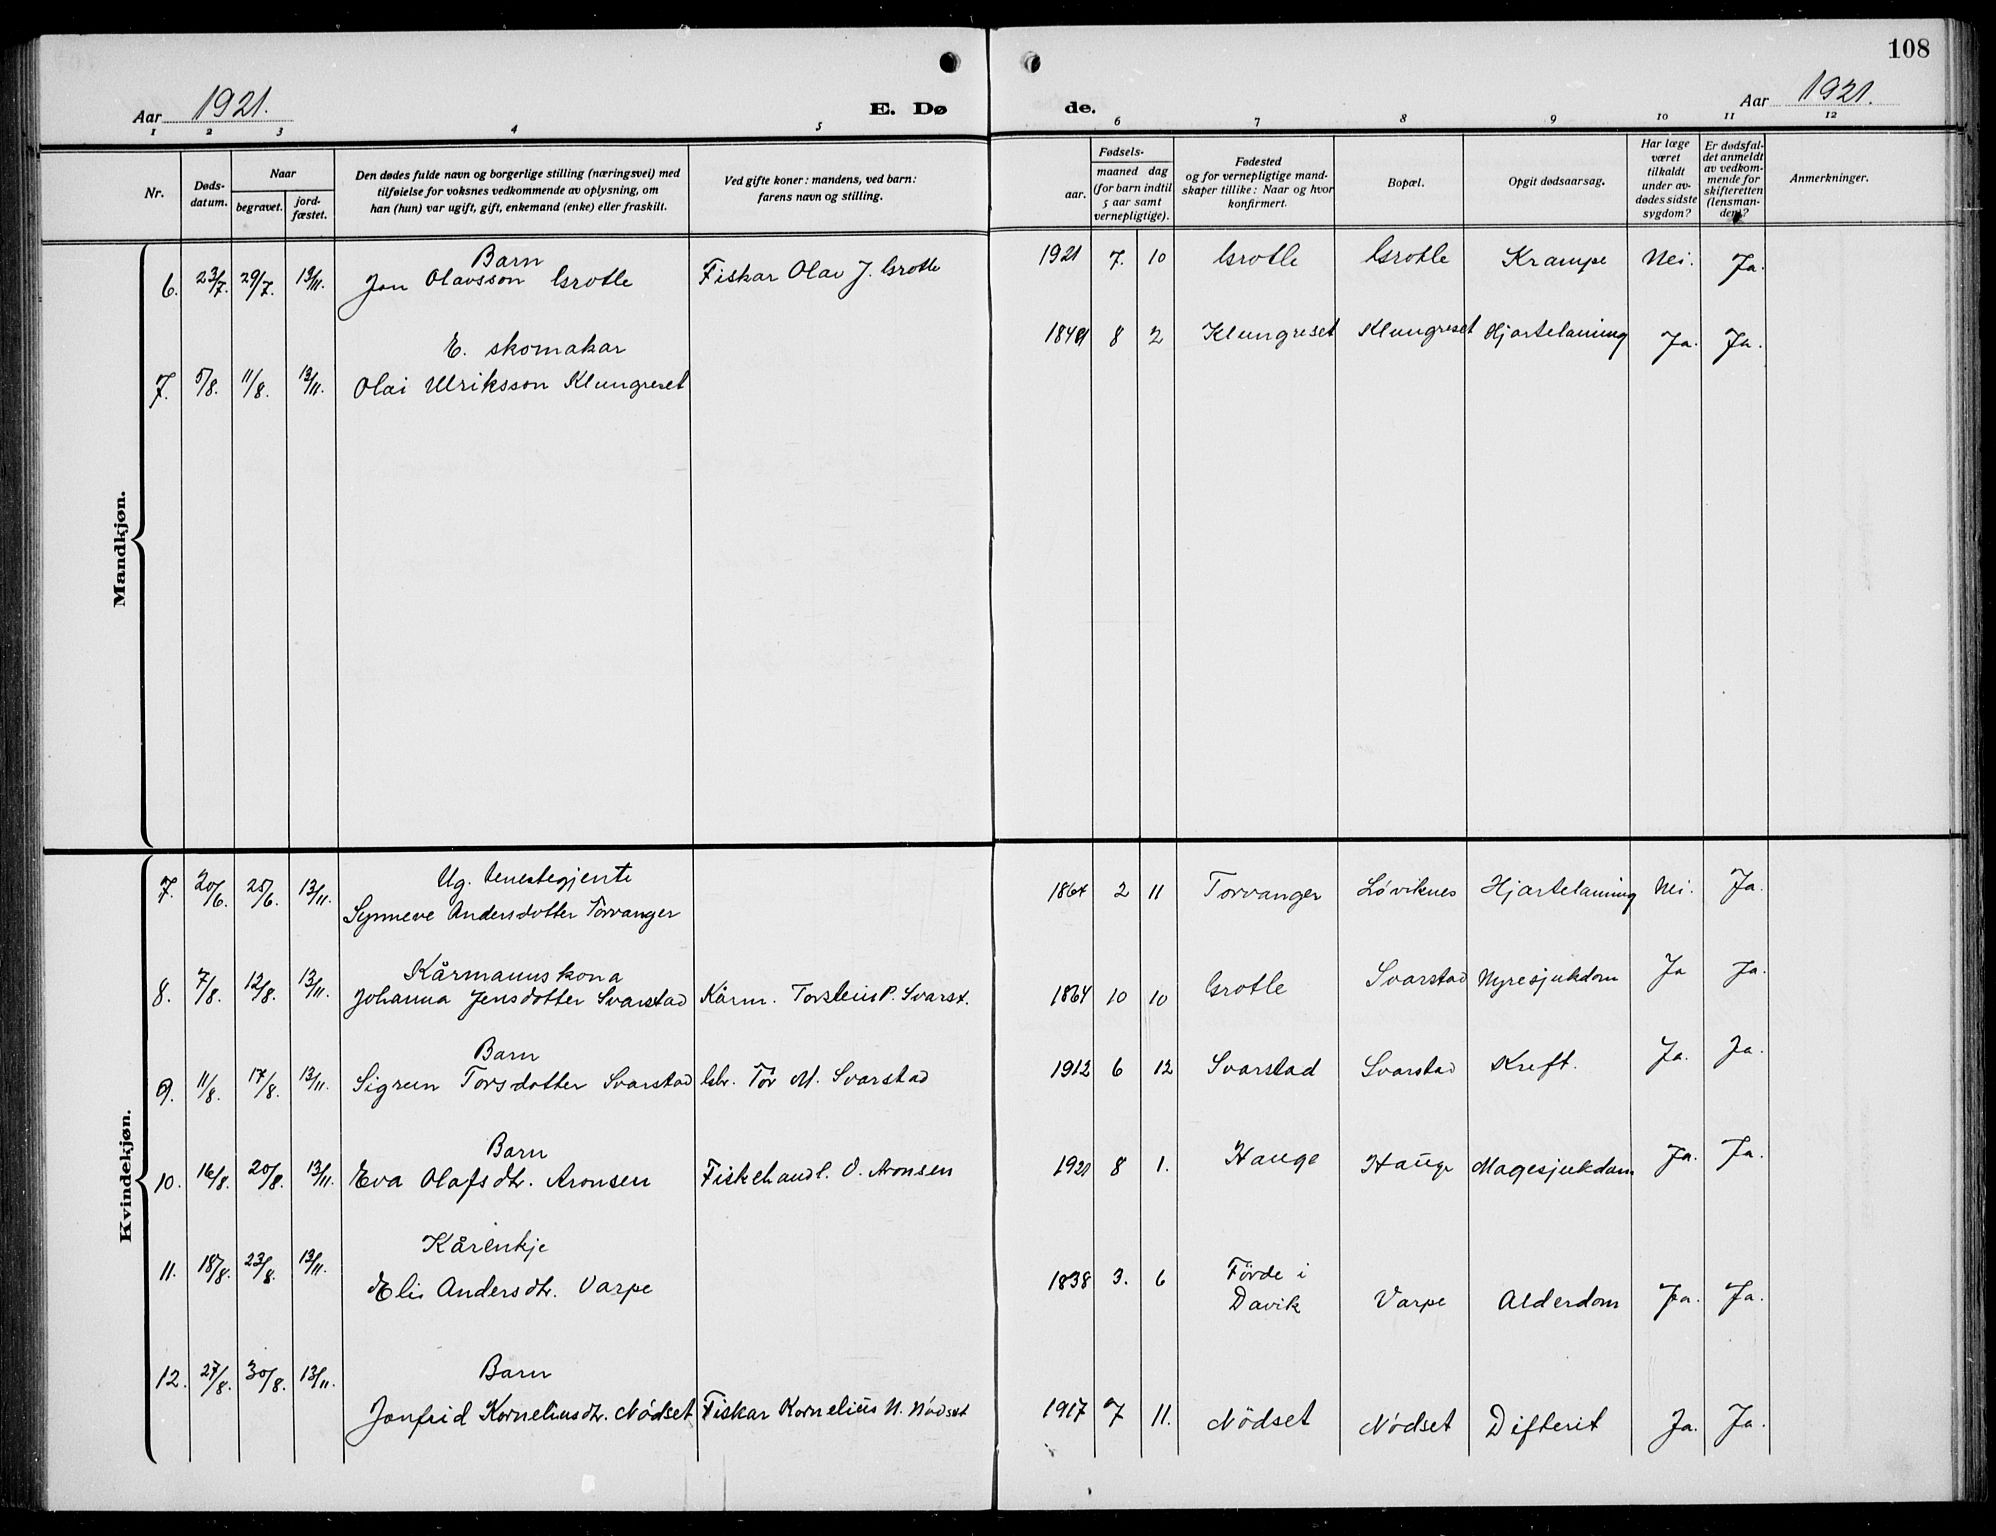 108
Aar 1921. E. Døde. Aar 1921.
1 2 3 4 5 6 7 8 9 10 11 12
Nr.
Døds-
datum.
Naar
begravet.
jord-
fæstet.
Den dødes fulde navn og borgerlige stilling (næringsvei) med
tilføielse for voksnes vedkommende av oplysning, om
han (hun) var ugift, gift, enkemand (enke) eller fraskilt.
Ved gifte koner: mandens, ved barn:
farens navn og stilling.
Fødsels-
aar.
maaned dag
(for barn indtil
5 aar samt
vernepligtige).
Fødested
og for vernepligtige mand-
skaper tillike: Naar og hvor
konfirmert.
Bopæl.
Opgit dødsaarsag.
Har læge
været
tilkaldt
under av-
dødes sidste
sygdom?
Er dødsfal-
det anmeldt
av vedkom-
mende for
skifteretten
(lensman-
den)?
Anmerkninger.
Mandkjøn.
Barn
6. 23/7. 29/7. 13/11. Jon Olavsson Grotle Fiskar Olav J. Grotle 1921 7. 10 Grotle Grotle Krampe Nei. Ja.
E. skomakar
7. 5/8. 11/8. 13/11. Olai Ulriksson Klungreset 8 2 Klungreset Klungreset Hjartelaming Ja. Ja.
Kvindekjøn.
Ug. tenestegjente
7. 20/6. 25/6. 13/11. Synneve Andersdotter Torvanger 1864 2 11 Torvanger Løviknes Hjartelaming Nei. Ja.
Kårmannskona
8. 7/8. 12/8. 13/11. Johanna Jensdotter Svarstad Kårm. Torstein P. Svarst. 1864 10 10 Grotle Svarstad Nyresjukdom Ja Ja.
Barn
9. 11/8. 17/8. 13/11. Sigrun Torsdotter Svarstad Gbr. Tor M. Svarstad 1912 6 12 Svarstad Svarstad Kreft. Ja. Ja.
Barn
10. 16/8. 20/8. 13/11. Eva Olafsdtr. Aronsen Fiskehandl. O. Aronsen 1921 8 1. Hauge Hauge Magesjukdom Ja. Ja.
Kårenkje
11. 18/8. 23/8. 13/11. Elis Andersdtr. Varpe 1838 3. 6 Førde i
Davik Varpe Alderdom Ja. Ja.
Barn
12. 27/8. 30/8. 13/11. Jonfrid Korneliusdtr. Nødset Fiskar Kornelius N. Nødset 1917 7 11. Nødset Nødset Difterit Ja. Ja.